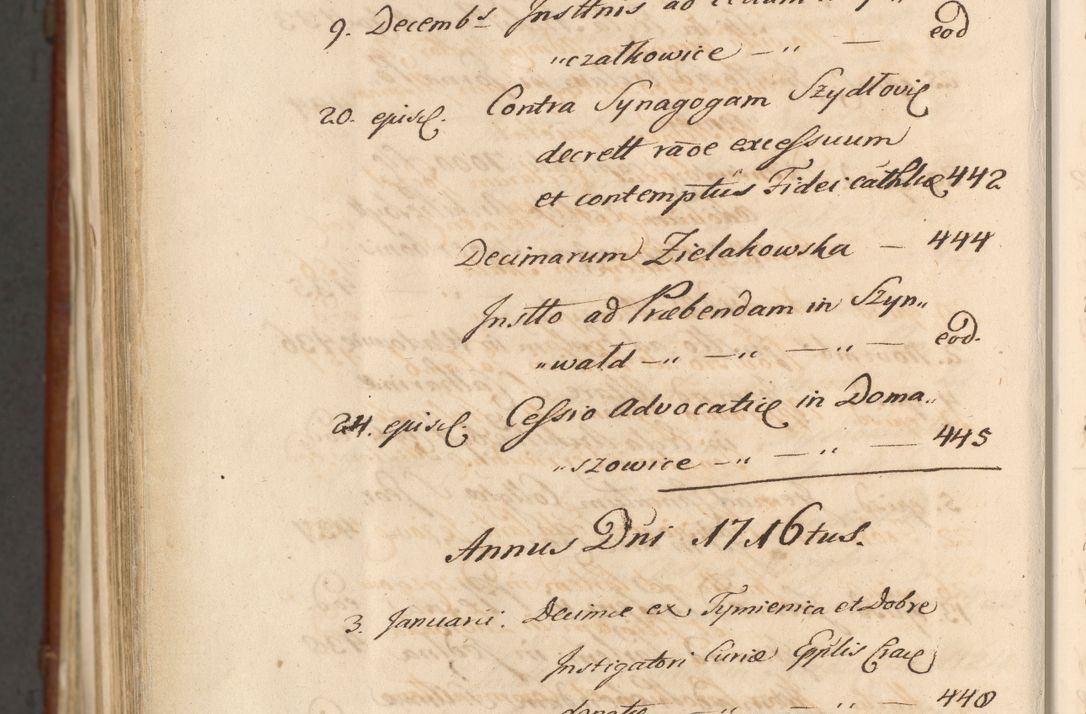 9. Decembs Insttnis ad
„czatkowice — „ — eod
20. episd. Contra Synagogam Szydłovię
decrett rãoe excessuum
et contemptûs Fidei cathlicæ 442
Decimarum Zielakowska — 444
Instto ad Præbendam in Szyn„
„wałd — „ — „ — „ — eod.
24. episd. Cessio Advocatiæ in Doma„
„szowice — „ — „ — 445
Annus Dni 1716tus.
3. Januarii. Decimæ ex Tymienica et Dobre
Instigatori Curiæ Epplis Cracę
donatæ — „ — „ — 448